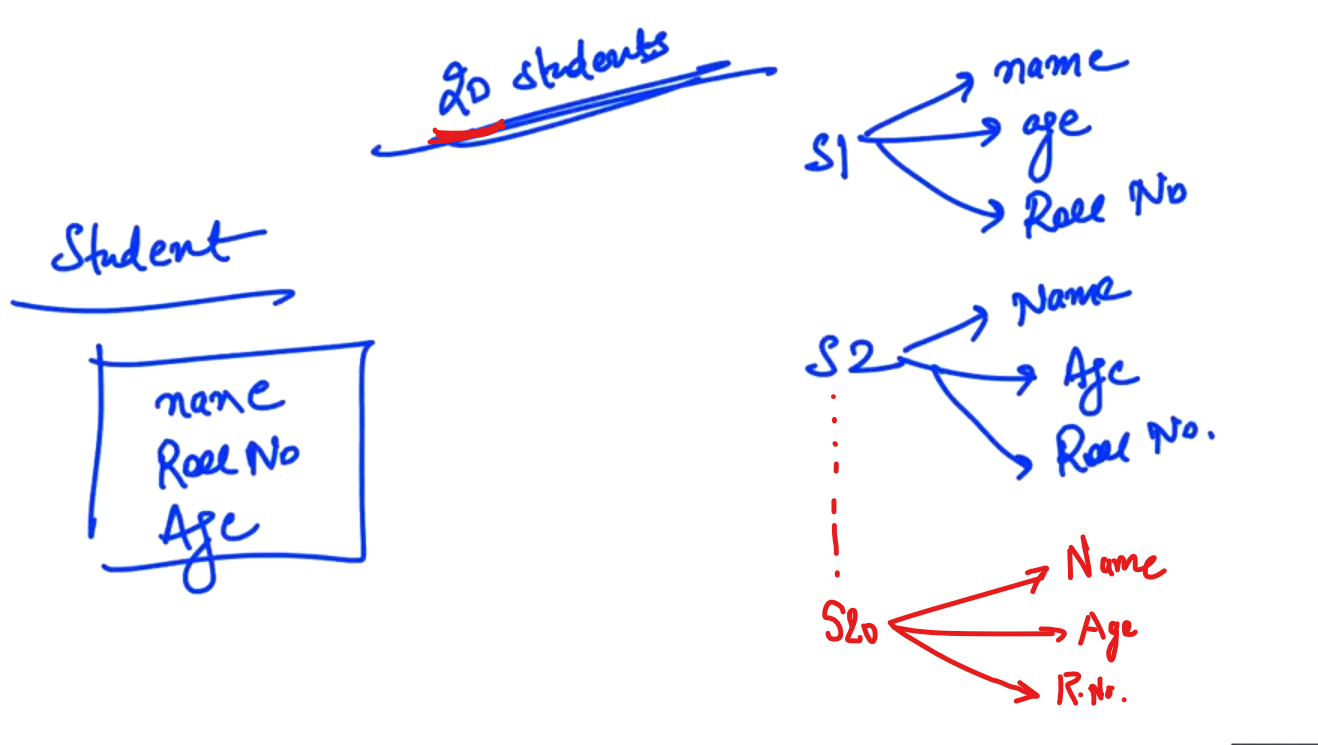 20 students
Student
name
Roll No
Age
S1
name
age
Roll No
S2
Name
Age
Roll No.
S20
Name
Age
R.No.